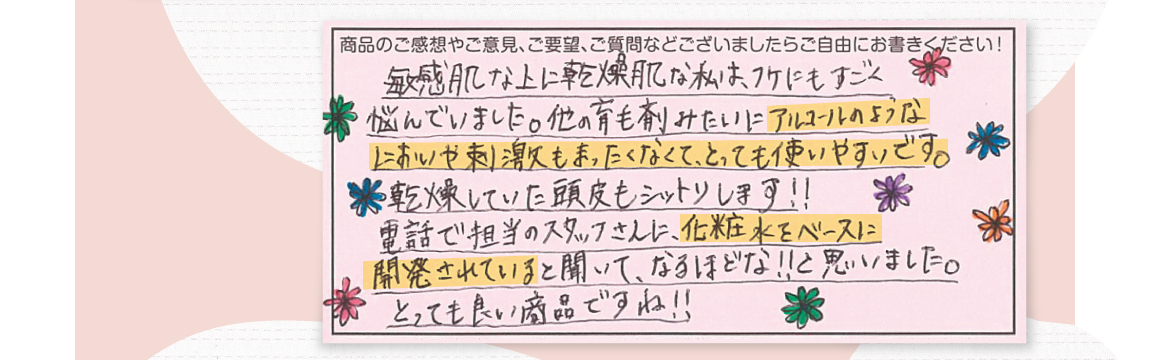 商品のご感想やご意見、ご要望、ご質問などございましたらご自由にお書きください！
敏感肌な上に乾燥肌な私は、フケにもすごく
悩んでいました。他の育毛剤みたいにアルコールのような
においや刺激もまったくなくて、とっても使いやすいです。
乾燥していた頭皮もシットリします!!
電話で担当のスタッフさんに、化粧水をベースに
開発されていると聞いて、なるほどな!!と思いました。
とっても良い商品ですね!!